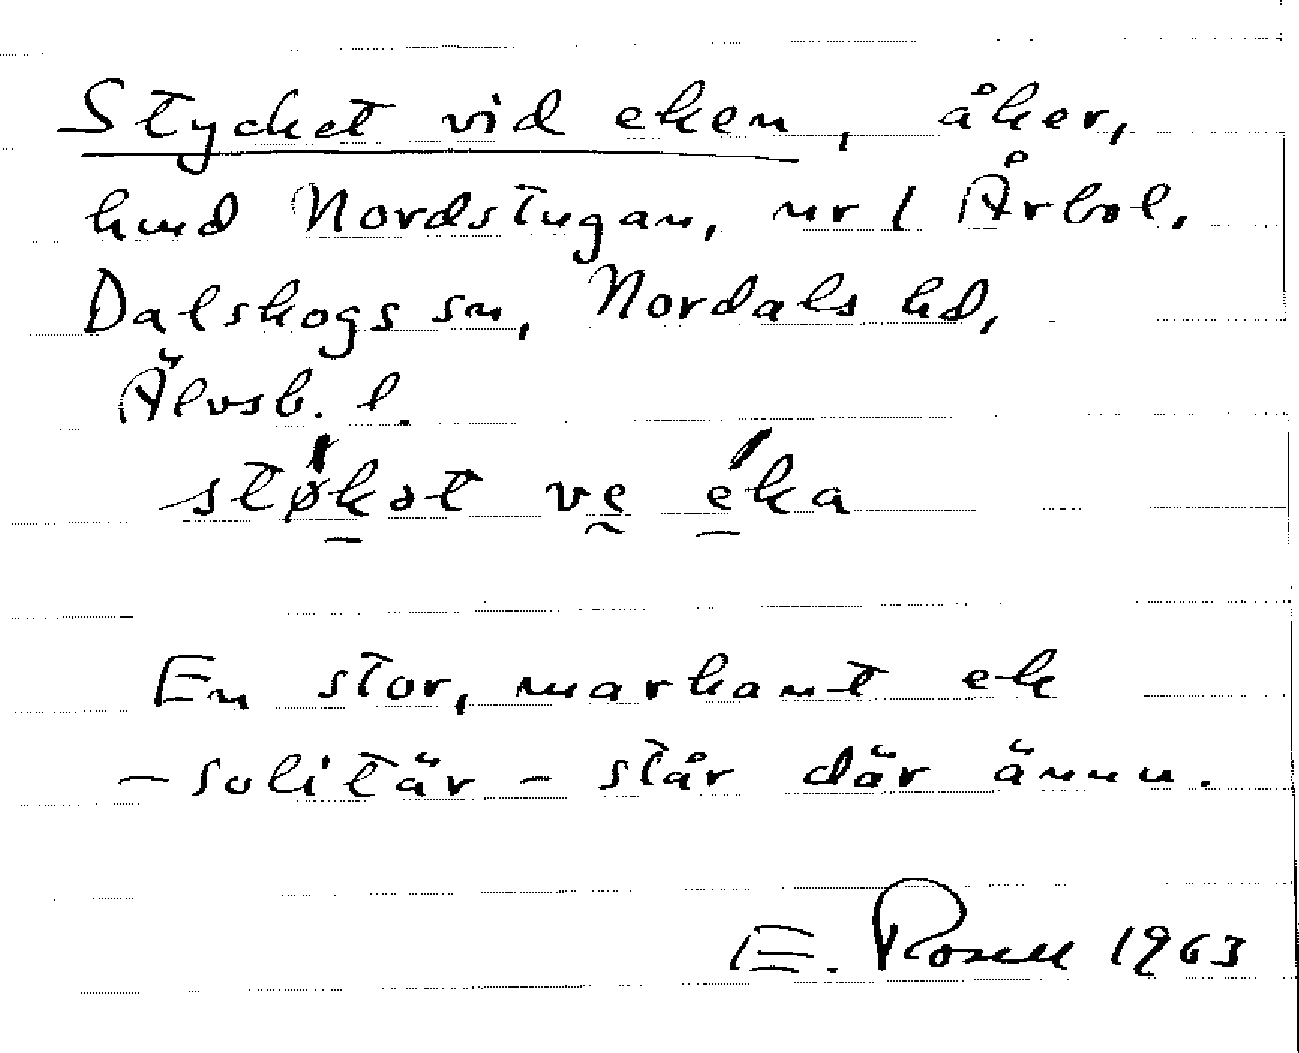 Stycket vid eken, åker,
hmd Nordstugan, nr 1 Årbol,
Dalskogs sn, Nordals hd,
Älvsb. l.
støkət ve eka
En stor, markant ek
- solitär - står där ännu.
E. Rosell 1963